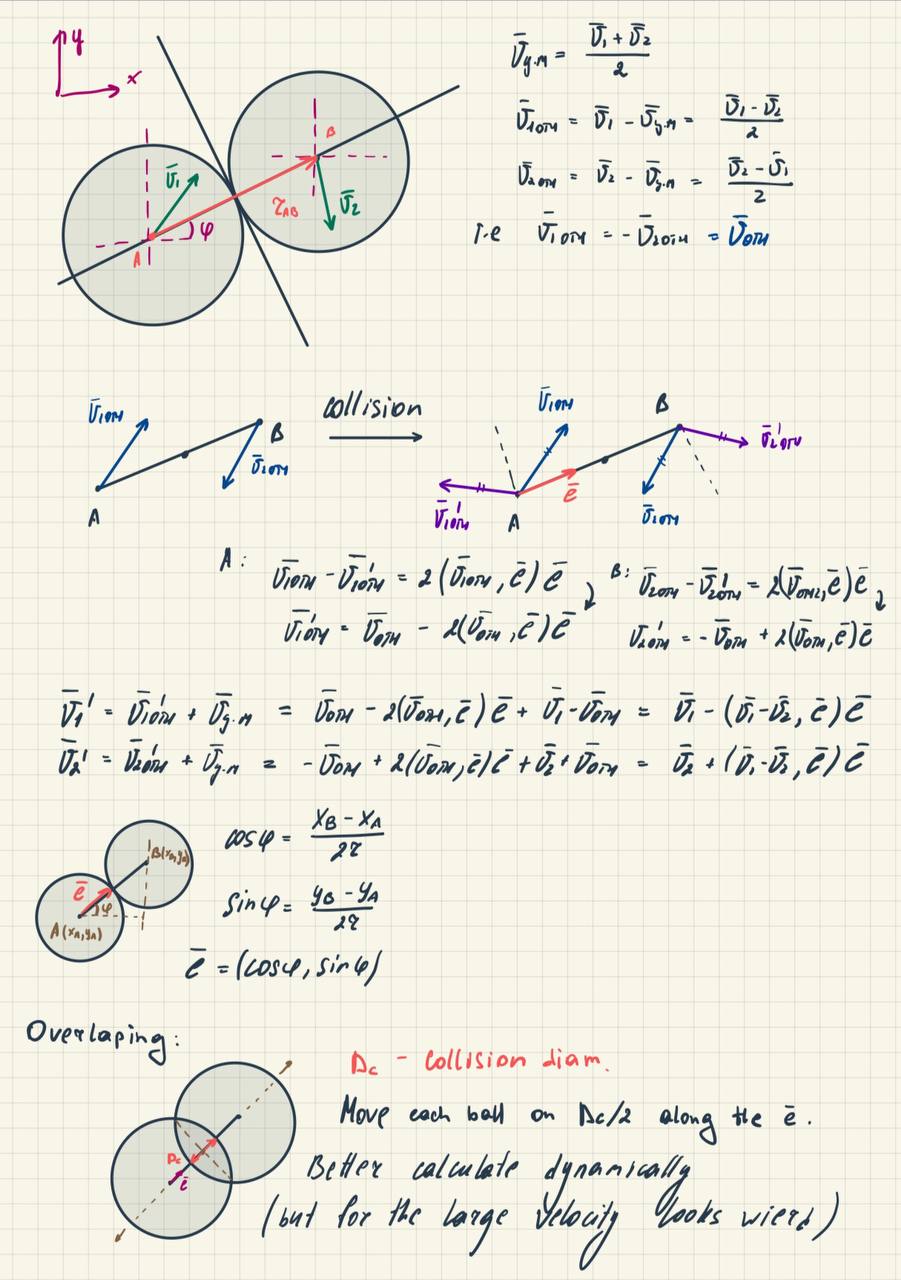 y
x
A
B
φ
r_AB
v̄₁
v̄₂
v̄ц.м = (v̄₁ + v̄₂)/2
v̄₁отн = v̄₁ - v̄ц.м = (v̄₁ - v̄₂)/2
v̄₂отн = v̄₂ - v̄ц.м = (v̄₂ - v̄₁)/2
т.е v̄₁отн = - v̄₂отн = v̄отн
v̄₁отн
A
B
v̄₂отн
collision
v̄₁отн
B
v̄₂'отн
ē
v̄₁'отн
A
v̄₂отн
A: v̄₁отн - v̄₁'отн = 2(v̄₁отн, ē)ē
v̄₁'отн = v̄отн - 2(v̄отн, ē)ē
B: v̄₂отн - v̄₂'отн = 2(v̄отн₂, ē)ē
v̄₂'отн = - v̄отн + 2(v̄отн, ē)ē
v̄₁' = v̄₁'отн + v̄ц.м = v̄отн - 2(v̄отн, ē)ē + v̄₁ - v̄отн = v̄₁ - (v̄₁ - v̄₂, ē)ē
v̄₂' = v̄₂'отн + v̄ц.м = - v̄отн + 2(v̄отн, ē)ē + v̄₂ + v̄отн = v̄₂ + (v̄₁ - v̄₂, ē)ē
B(x_B, y_B)
ē
φ
A(x_A, y_A)
cosφ = (x_B - x_A)/2r
sinφ = (y_B - y_A)/2r
ē = (cosφ, sinφ)
Overlaping:
Dc
ē
Dc - collision diam.
Move each ball on Dc/2 along the ē.
Better calculate dynamically
(but for the large velocity looks wierd)